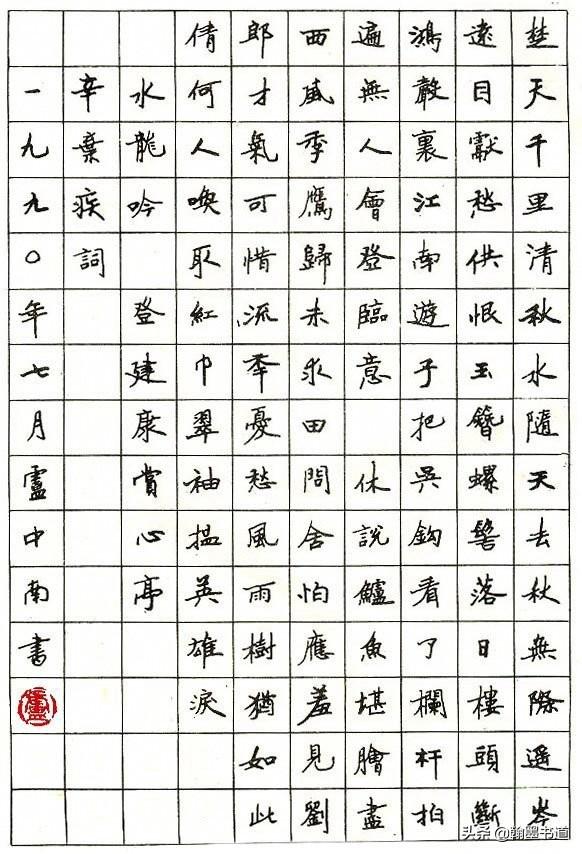 楚天千里清秋水隨天去秋無際遥岑
遠目獻愁供恨玉簪螺髻落日樓頭斷
鴻聲裏江南遊子把吳鈎看了欄杆拍
遍無人會登臨意 休說鱸魚堪膾盡
西風季鷹歸未求田問舍怕應羞見劉
郎才氣可惜流秊憂愁風雨樹猶如此
倩何人喚取紅巾翠袖揾英雄淚
水龍吟 登建康賞心亭
辛棄疾詞
一九九〇年七月盧中南書
头条 @翰墨书道